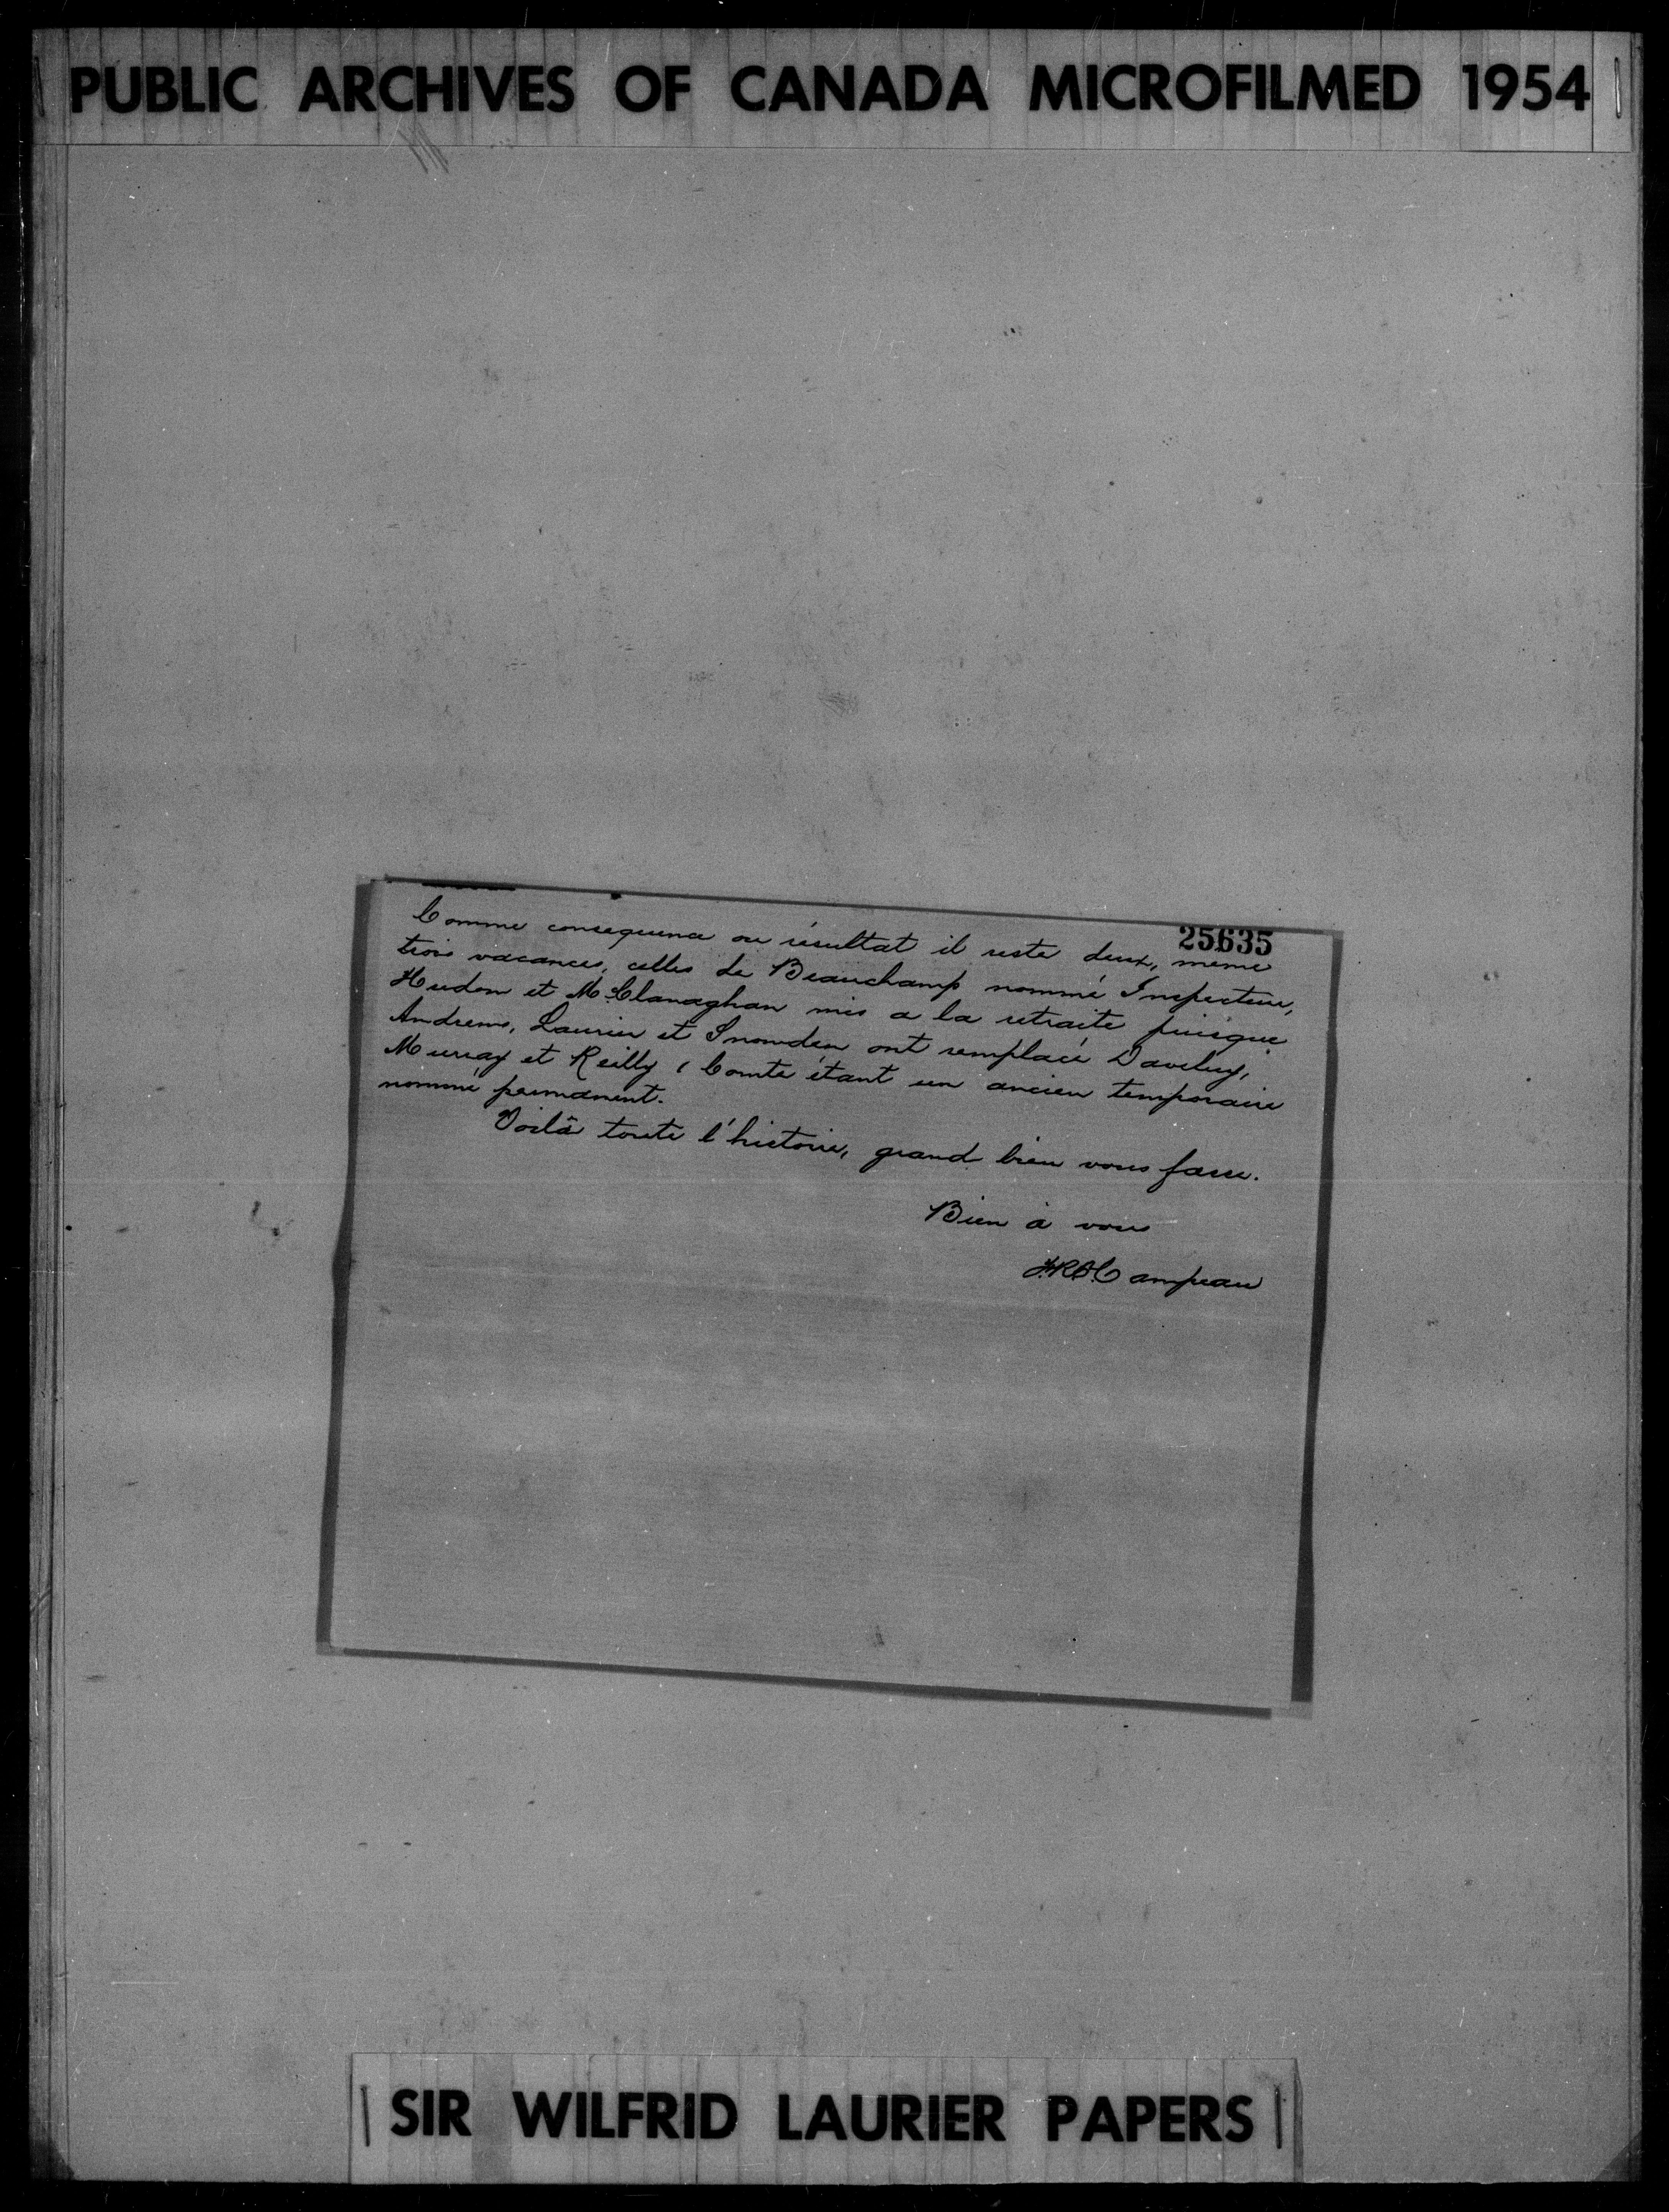 PUBLIC ARCHIVES OF CANADA MICROFILMED 1954
25635
Comme consequence ou résultat il reste deux, meme
trois vacances, celles de Beauchamp nommé Inspecteur,
Hudon et McClanaghan mis a la retraite puisque
Andrews, Laurier et Snowden ont remplacé Daveluy,
Murray et Reilly ( Comte étant un ancien temporaire
nommé permanent.
Voilà toute l'histoire, grand bien vous fasse.
Bien à vous
Campeau
SIR WILFRID LAURIER PAPERS